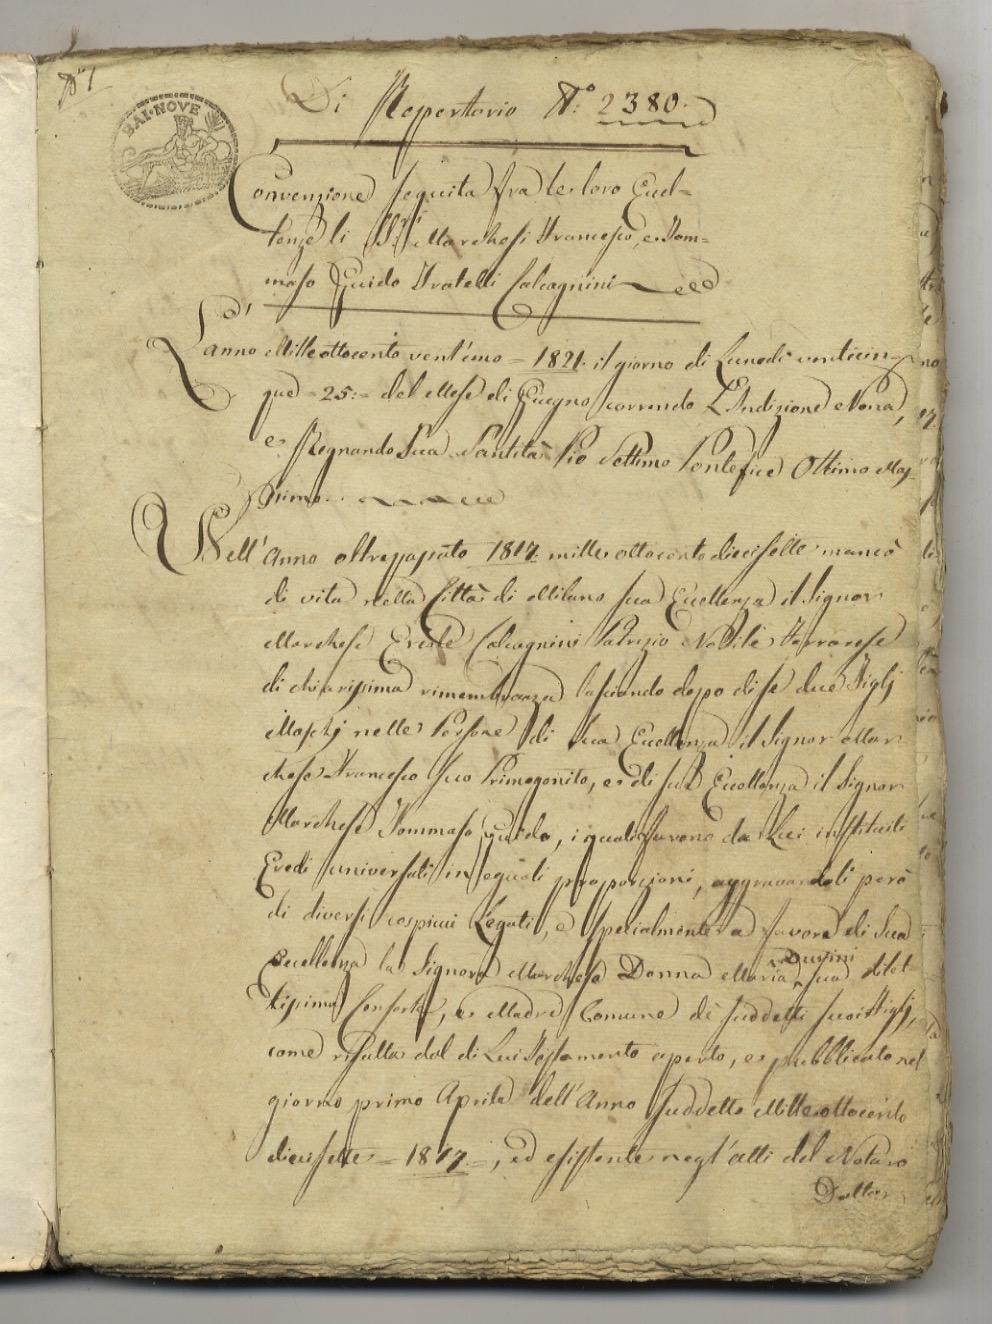 N.º 1
BAI·NOVE
Di Repertorio N.º 2380.
Convenzione seguita fra le loro Eccel-
lenze li Sig.ri Marchesi Francesco, e Tom-
maso Guido Fratelli Calcagnini
L'anno Mille ottocento vent'uno = 1821. il giorno di Lunedì venticin-
que = 25: = del Mese di Giugno, correndo L'Indizione Nona,
e Regnando Sua Santità Pio Settimo Pontefice Ottimo Mas-
simo.
Nell'Anno oltrepassato 1817. mille ottocento diecisette mancò
di vita nella Città di Milano Sua Eccellenza il Signor
Marchese Ercole Calcagnini Patrizio Nobile Ferrarese
di chiarissima rimembranza lasciando dopo di se due Figlj
Maschj nelle Persone di Sua Eccellenza il Signor Mar-
chese Francesco suo Primogenito, e di Sua Eccellenza il Signor
Marchese Tommaso Guido, i quali furono da Lui instituiti
Eredi universali in eguali proporzioni, aggravandoli però
di diversi cospicui Legati, e specialmente a favore di Sua
Eccellenza la Signora Marchesa Donna Maria Durini sua dilet-
tissima Consorte, e Madre Comune de suddetti suoi Figlj,
come risulta dal di Lui Testamento aperto, e pubblicato nel
giorno primo Aprile dell'Anno suddetto Mille ottocento
diecisette = 1817. =, ed esistente negl'atti del Notaro
Dottor